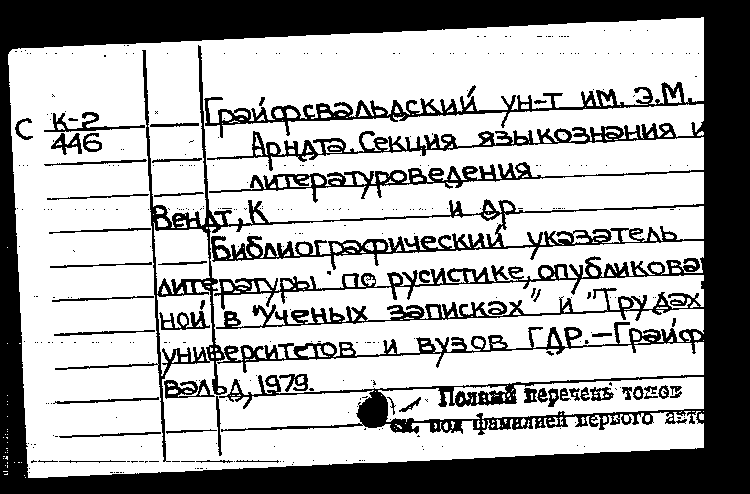 Грайфсвальдский ун-т им. Э.М.
С К-2
446
Арндта. Секция языкознания и
литературоведения.
Вендт, К и др.
Библиографический указатель
литературы по русистике, опубликован
ной в "Ученых записках" и "Трудах"
университетов и вузов ГДР.—Грайфс
вальд, 1979.
Полный перечень томов
см. под фамилией первого авто